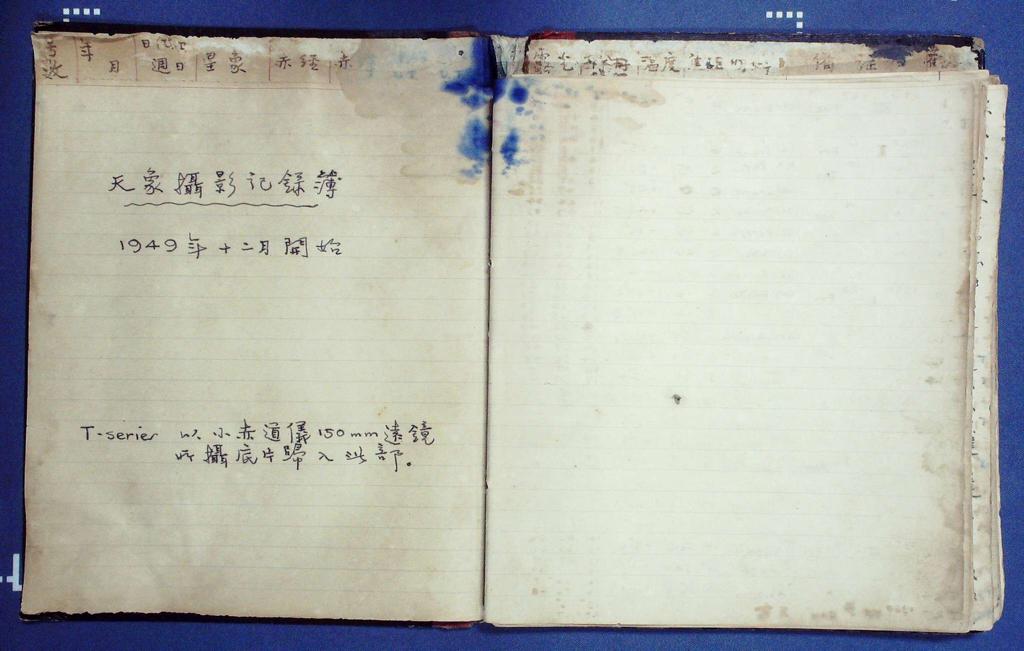 号数 年月 日 週日 星象 赤経 赤
露光 温度 備
天象攝影記錄簿
1949年十二月開始
T-series 以小赤道儀150mm遠鏡
所攝底片歸入此部。